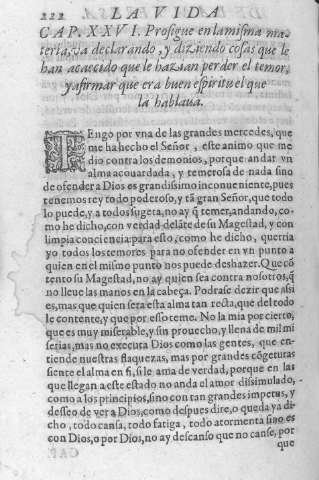 222 LA VIDA
CAP. XXVI. Prosigue en la misma ma-
teria, va declarando, y diziendo cosas que le
han acaecido que le hazian perder el temor,
y afirmar que era buen espiritu el que
la hablaua.
TEngo por vna de las grandes mercedes, que
me ha hecho el Señor, este animo que me
dio contra los demonios, porque andar vn
alma acouardada, y temerosa de nada sino
de ofender a Dios es grandissimo inconueniente, pues
tenemos rey todo poderoso, y tã gran Señor, que todo
lo puede, y a todos sugeta, no ay q̃ temer, andando, co-
mo he dicho, con verdad delãte de su Magestad, y con
limpia conciencia para esto, como he dicho, querria
yo todos los temores para no ofender en vn punto a
quien en el mismo punto nos puede deshazer. Que cõ
tento su Magestad, no ay quien sea contra nosotros, q̃
no lleue las manos en la cabeça. Podrase dezir que assi
es, mas que quien sera esta alma tan recta, que del todo
le contente, y que por esso teme. No la mia por cierto,
que es muy miserable, y sin prouecho, y llena de mil mi
serias, mas no executa Dios como las gentes, que en-
tiende nuestras flaquezas, mas por grandes cõgeturas
siente el alma en si, si le ama de verdad, porque en las
que llegan a este estado no anda el amor dissimulado,
como a los principios, sino con tan grandes impetus, y
desseo de ver a Dios, como despues dire, o queda ya di-
cho, todo cansa, todo fatiga, todo atormenta sino es
con Dios, o por Dios, no ay descanso que no canse, por
que